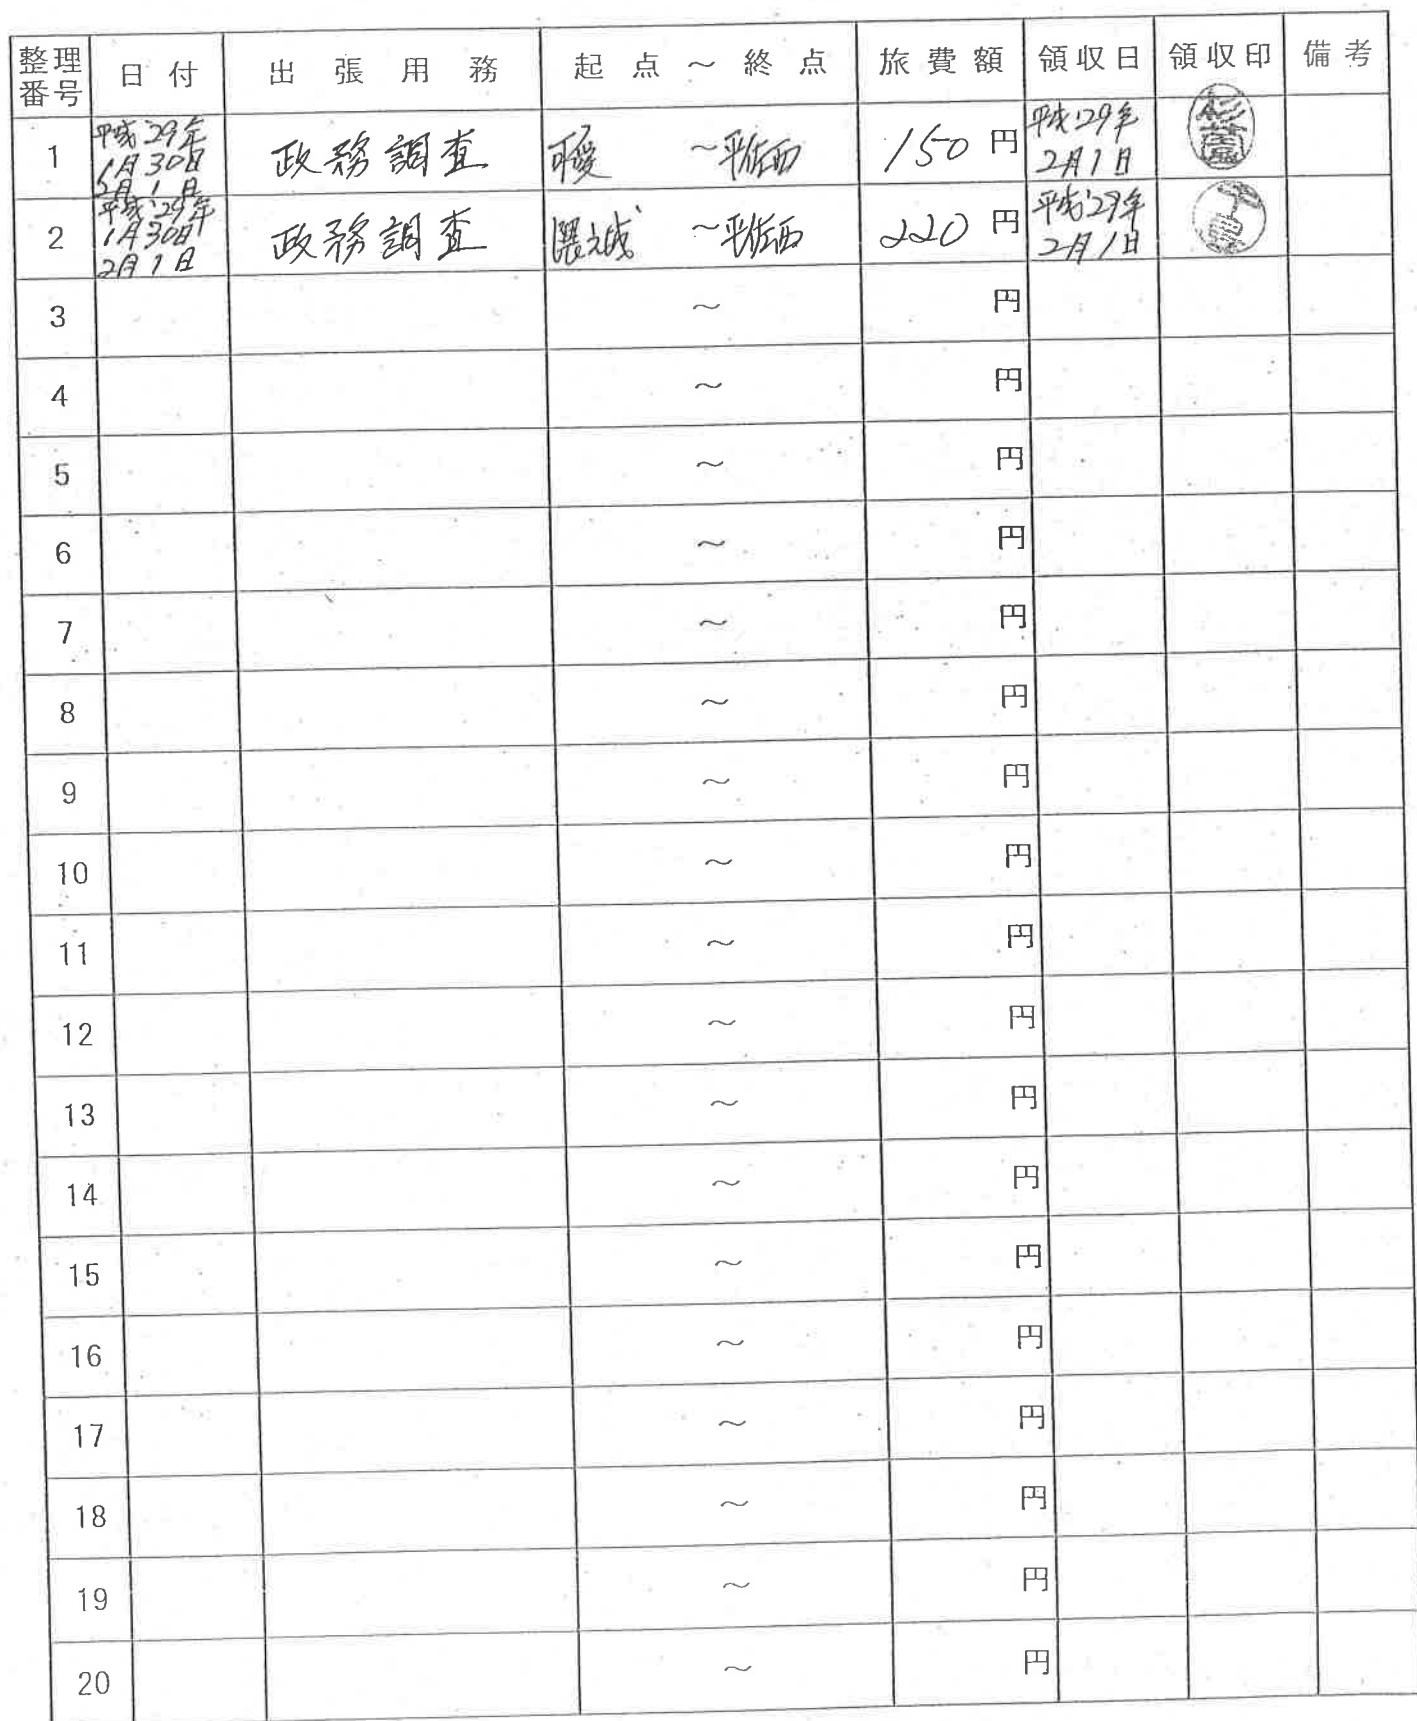 整理番号 日付 出張用務 起点～終点 旅費額 領収日 領収印 備考
1 平成29年1月30日2月1日 政務調査 可愛～平佐西 150円 平成29年2月1日
2 平成29年1月30日2月1日 政務調査 隈之城～平佐西 220円 平成29年2月1日
3 ～ 円
4 ～ 円
5 ～ 円
6 ～ 円
7 ～ 円
8 ～ 円
9 ～ 円
10 ～ 円
11 ～ 円
12 ～ 円
13 ～ 円
14 ～ 円
15 ～ 円
16 ～ 円
17 ～ 円
18 ～ 円
19 ～ 円
20 ～ 円